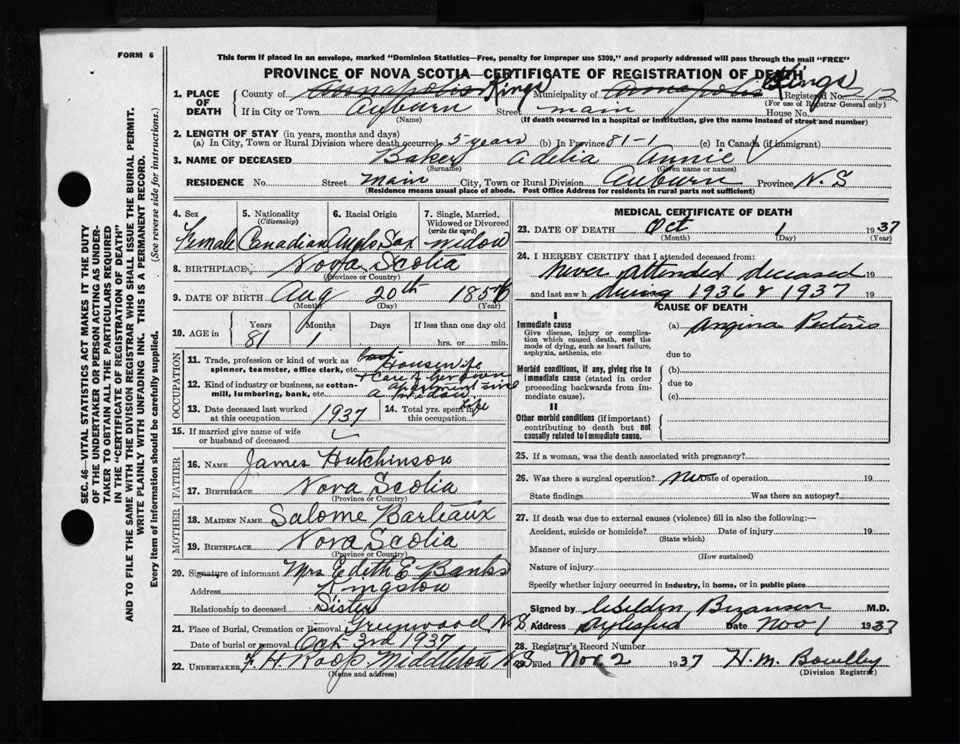 FORM 6
This form if placed in an envelope, marked "Dominion Statistics—Free, penalty for improper use $300," and properly addressed will pass through the mail "FREE"
PROVINCE OF NOVA SCOTIA—CERTIFICATE OF REGISTRATION OF DEATH
1. PLACE OF DEATH County of Annapolis Kings Municipality of Annapolis Kings Registered No. 212
(For use of Registrar General only)
If in City or Town Auburn Street main House No.
(Name) (If death occurred in a hospital or institution, give the name instead of street and number)
2. LENGTH OF STAY (in years, months and days)
(a) In City, Town or Rural Division where death occurred 5 years (b) In Province 81-1 (c) In Canada (if immigrant)
3. NAME OF DECEASED Baker Adelia Annie
(Surname) (Given name or names)
RESIDENCE No. Street Main City, Town or Rural Division Auburn Province N.S
(Residence means usual place of abode. Post Office Address for residents in rural parts not sufficient)
4. Sex Female
5. Nationality (Citizenship) Canadian
6. Racial Origin Anglo Sax
7. Single, Married, Widowed or Divorced (write the word) widow
8. BIRTHPLACE Nova Scotia
(Province or Country)
9. DATE OF BIRTH Aug 20th 1856
(Month) (Day) (Year)
10. AGE in Years 81 Months 1 Days If less than one day old hrs. or min.
OCCUPATION
11. Trade, profession or kind of work as spinner, teamster, office clerk, etc. Housewife
12. Kind of industry or business, as cotton-mill, lumbering, bank, etc. & Care of her own apartment since a widow
13. Date deceased last worked at this occupation 1937
14. Total yrs. spent in this occupation life
15. If married give name of wife or husband of deceased
FATHER
16. NAME James Hutchinson
17. BIRTHPLACE Nova Scotia
(Province or Country)
MOTHER
18. MAIDEN NAME Salome Barteaux
19. BIRTHPLACE Nova Scotia
(Province or Country)
20. Signature of informant Mrs Edith E Banks
Address Kingston
Relationship to deceased Sister
21. Place of Burial, Cremation or Removal Greenwood N.S
Date of burial or removal Oct 3rd 1937
22. UNDERTAKER F. H. Roop, Middleton N.S.
(Name and address)
MEDICAL CERTIFICATE OF DEATH
23. DATE OF DEATH Oct 1 1937
(Month) (Day) (Year)
24. I HEREBY CERTIFY that I attended deceased from:
Never attended deceased 19
and last saw h during 1936 & 1937 19
CAUSE OF DEATH
I
Immediate cause (a) Angina Pectoris
Give disease, injury or complication which caused death, not the mode of dying, such as heart failure, asphyxia, asthenia, etc
due to
Morbid conditions, if any, giving rise to immediate cause (stated in order proceeding backwards from immediate cause). (b)
due to
(c)
II
Other morbid conditions (if important) contributing to death but not causally related to immediate cause.
25. If a woman, was the death associated with pregnancy?
26. Was there a surgical operation? no Date of operation 19
State findings Was there an autopsy?
27. If death was due to external causes (violence) fill in also the following:—
Accident, suicide or homicide? Date of injury 19
(State which)
Manner of injury
(How sustained)
Nature of injury
Specify whether injury occurred in industry, in home, or in public place
Signed by Bezanson M.D.
Address Aylesford Date Nov 1 1937
28. Registrar's Record Number
29. Filed Nov 2 1937 H. M. Bowlby
(Division Registrar)
SEC. 46—VITAL STATISTICS ACT MAKES IT THE DUTY
OF THE UNDERTAKER OR PERSON ACTING AS UNDER-
TAKER TO OBTAIN ALL THE PARTICULARS REQUIRED
IN THE "CERTIFICATE OF REGISTRATION OF DEATH"
AND TO FILE THE SAME WITH THE DIVISION REGISTRAR WHO SHALL ISSUE THE BURIAL PERMIT.
WRITE PLAINLY WITH UNFADING INK. THIS IS A PERMANENT RECORD.
Every item of information should be carefully supplied. (See reverse side for instructions.)